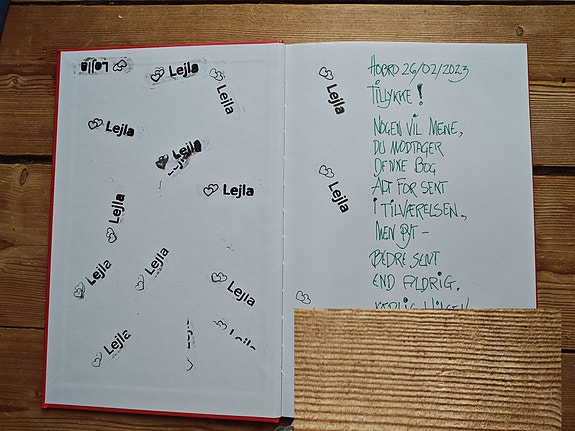 Lejla
Lejla
Lejla
Lejla
Lejla
Lejla
Lejla
Lejla
Lejla
Lejla
Lejla
Lejla
Lejla
Lejla
HOBRO 26/02/2023
TILLYKKE!
NOGEN VIL MENE,
DU MODTAGER
DENNE BOG
ALT FOR SENT
I TILVÆRELSEN,
MEN PYT -
BEDRE SENT
END ALDRIG.